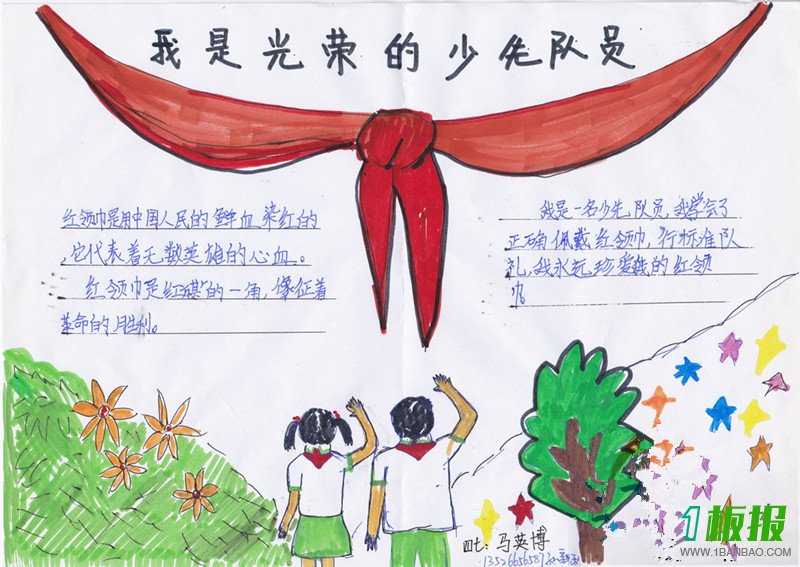 我是光荣的少先队员
红领巾是用中国人民的鲜血染红的
,它代表着无数英雄的心血。
红领巾是红旗的一角,像征着
革命的胜利。
我是一名少先队员,我学会了
正确佩戴红领巾,行标准队
礼,我永远珍爱我的红领
巾。
四七:马英博
1板报
WWW.1BANBAO.COM